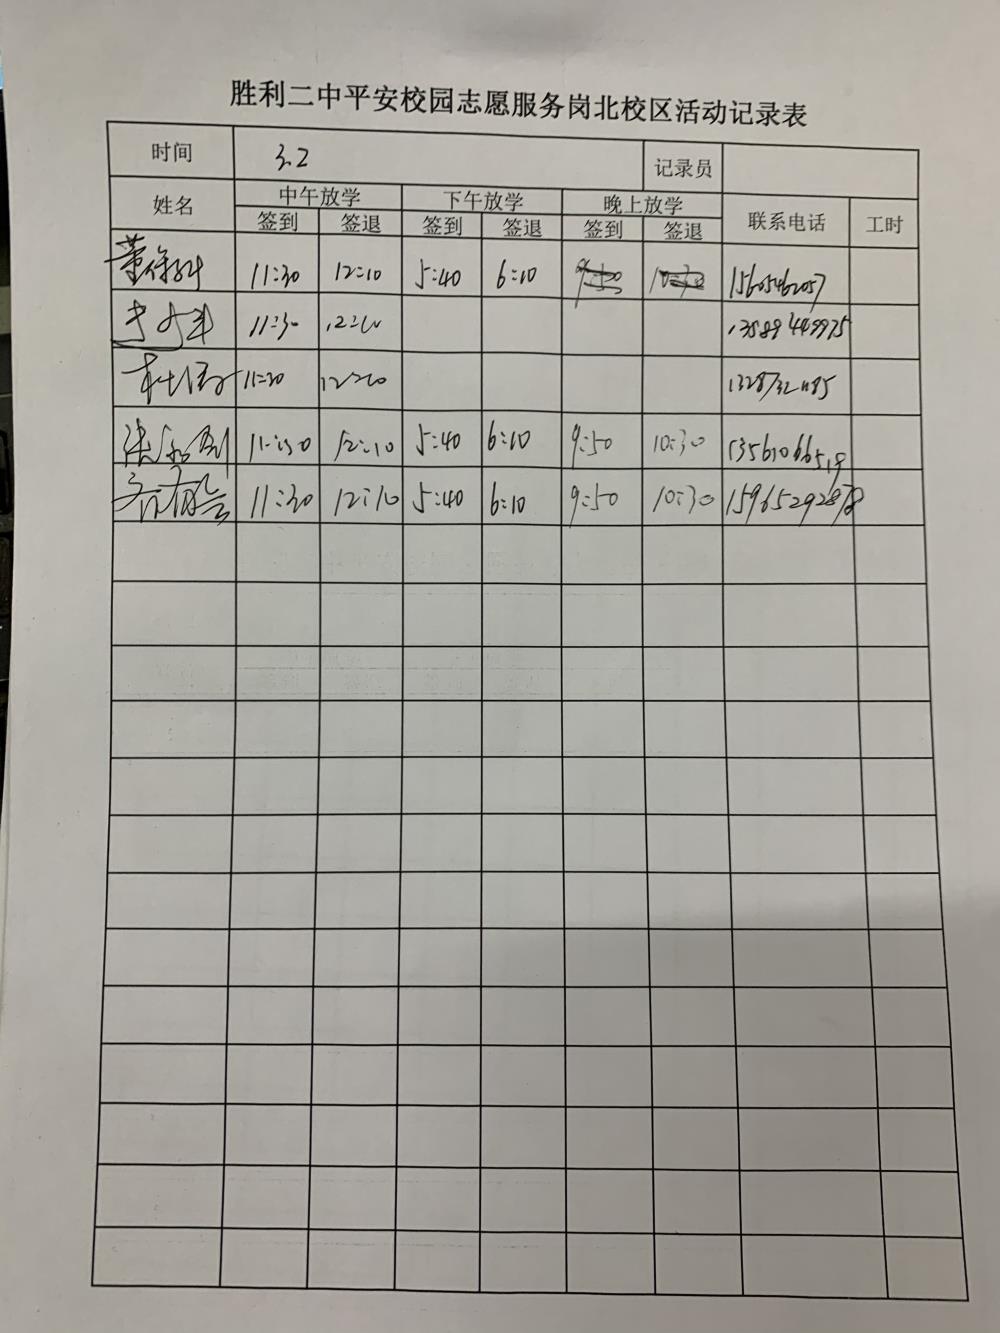 胜利二中平安校园志愿服务岗北校区活动记录表
时间 3.2 记录员
姓名 中午放学 下午放学 晚上放学 联系电话 工时
签到 签退 签到 签退 签到 签退
11:30 12:10 5:40 6:10 9:50 10:30 15605462057
11:30 12:10 13589449975
11:30 12:10
11:30 12:10 5:40 6:10 9:50 10:30 13561066519
11:30 12:10 5:40 6:10 9:50 10:30 15965292878